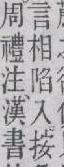 言相陷入按
周禮注漢書